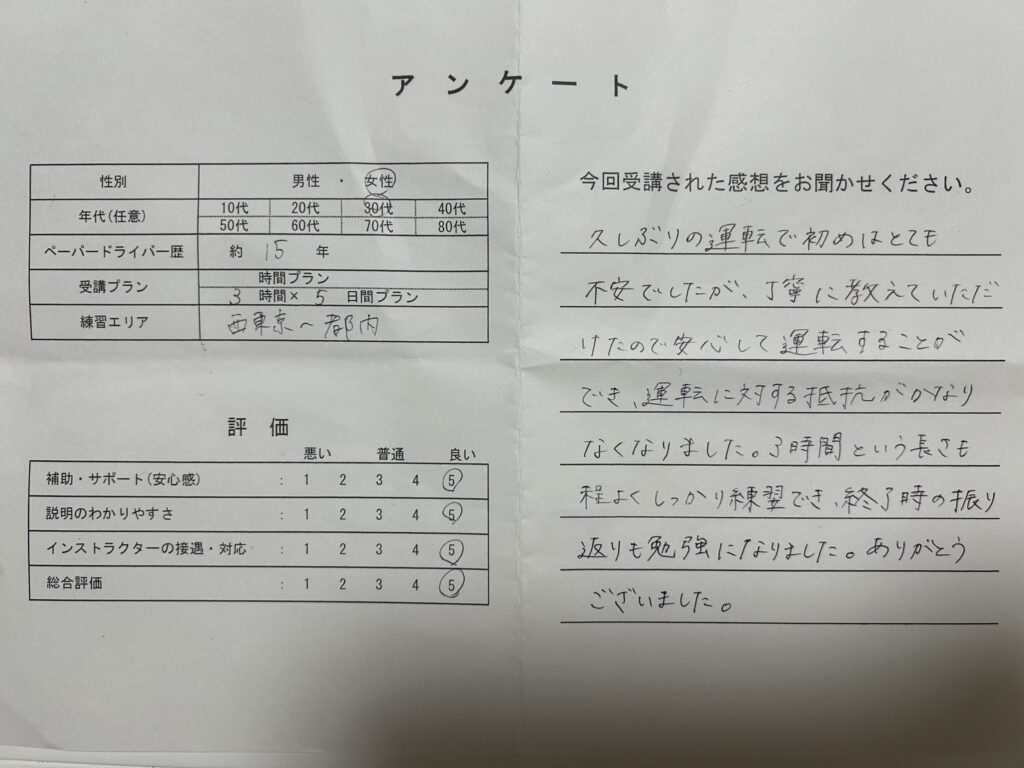 アンケート
性別 男性 ・ 女性
年代(任意) 10代 20代 30代 40代
50代 60代 70代 80代
ペーパードライバー歴 約 15 年
受講プラン 時間プラン
3 時間× 5 日間プラン
練習エリア 西東京〜都内
評価
悪い 普通 良い
補助・サポート(安心感) : 1 2 3 4 5
説明のわかりやすさ : 1 2 3 4 5
インストラクターの接遇・対応 : 1 2 3 4 5
総合評価 : 1 2 3 4 5
今回受講された感想をお聞かせください。
久しぶりの運転で初めはとても
不安でしたが、丁寧に教えていただ
けたので安心して運転することが
でき、運転に対する抵抗がかなり
なくなりました。3時間という長さも
程よくしっかり練習でき、終了時の振り
返りも勉強になりました。ありがとう
ございました。